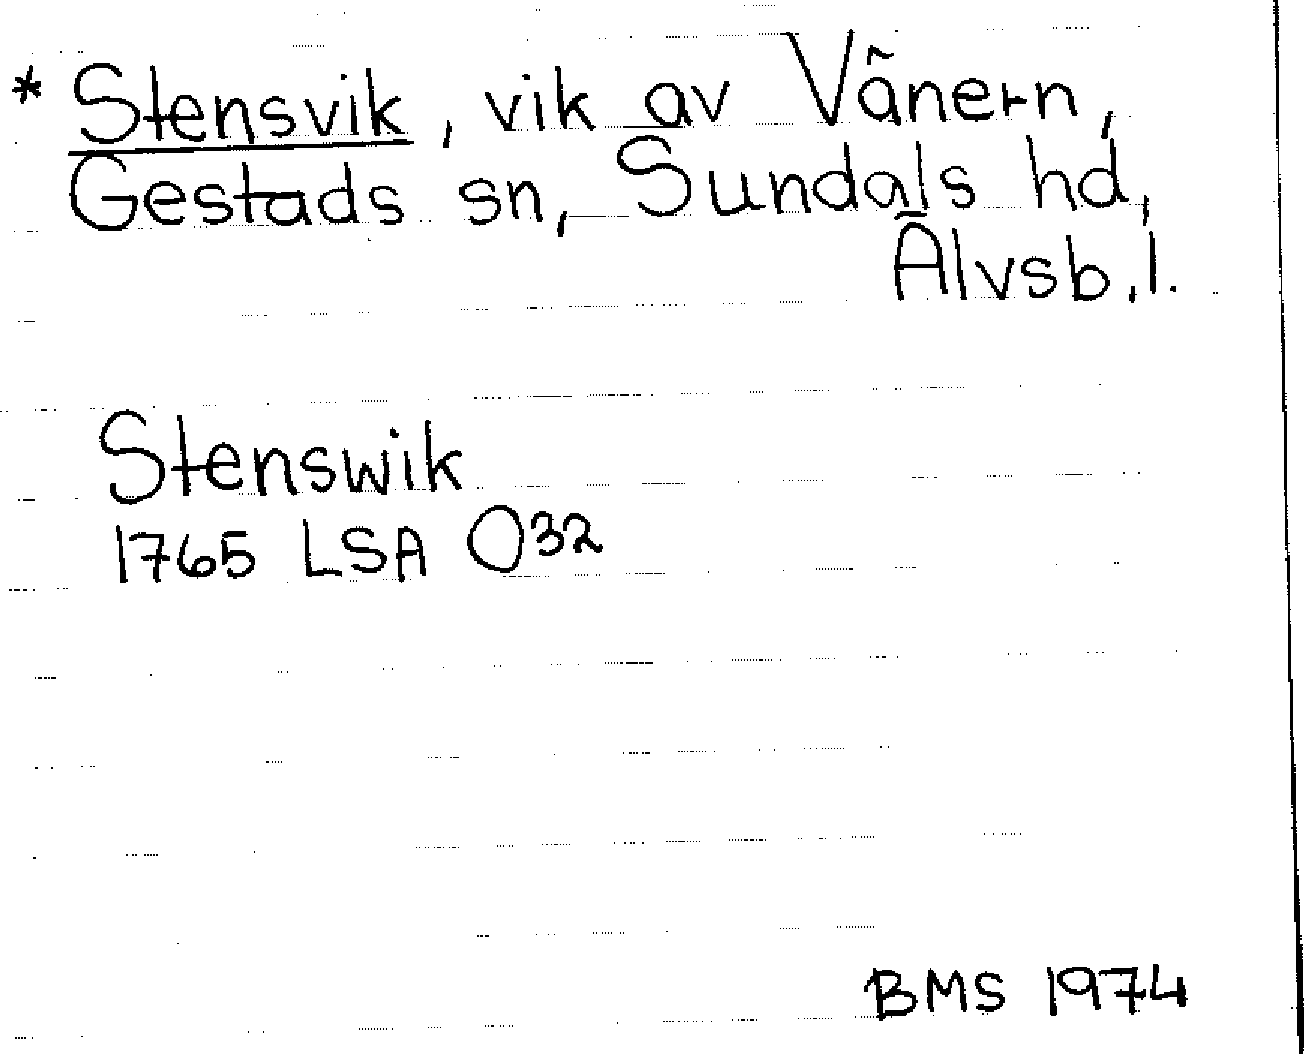 * Stensvik, vik av Vänern,
Gestads sn, Sundals hd,
Älvsb.l.
Stenswik
1765 LSA O32
BMS 1974